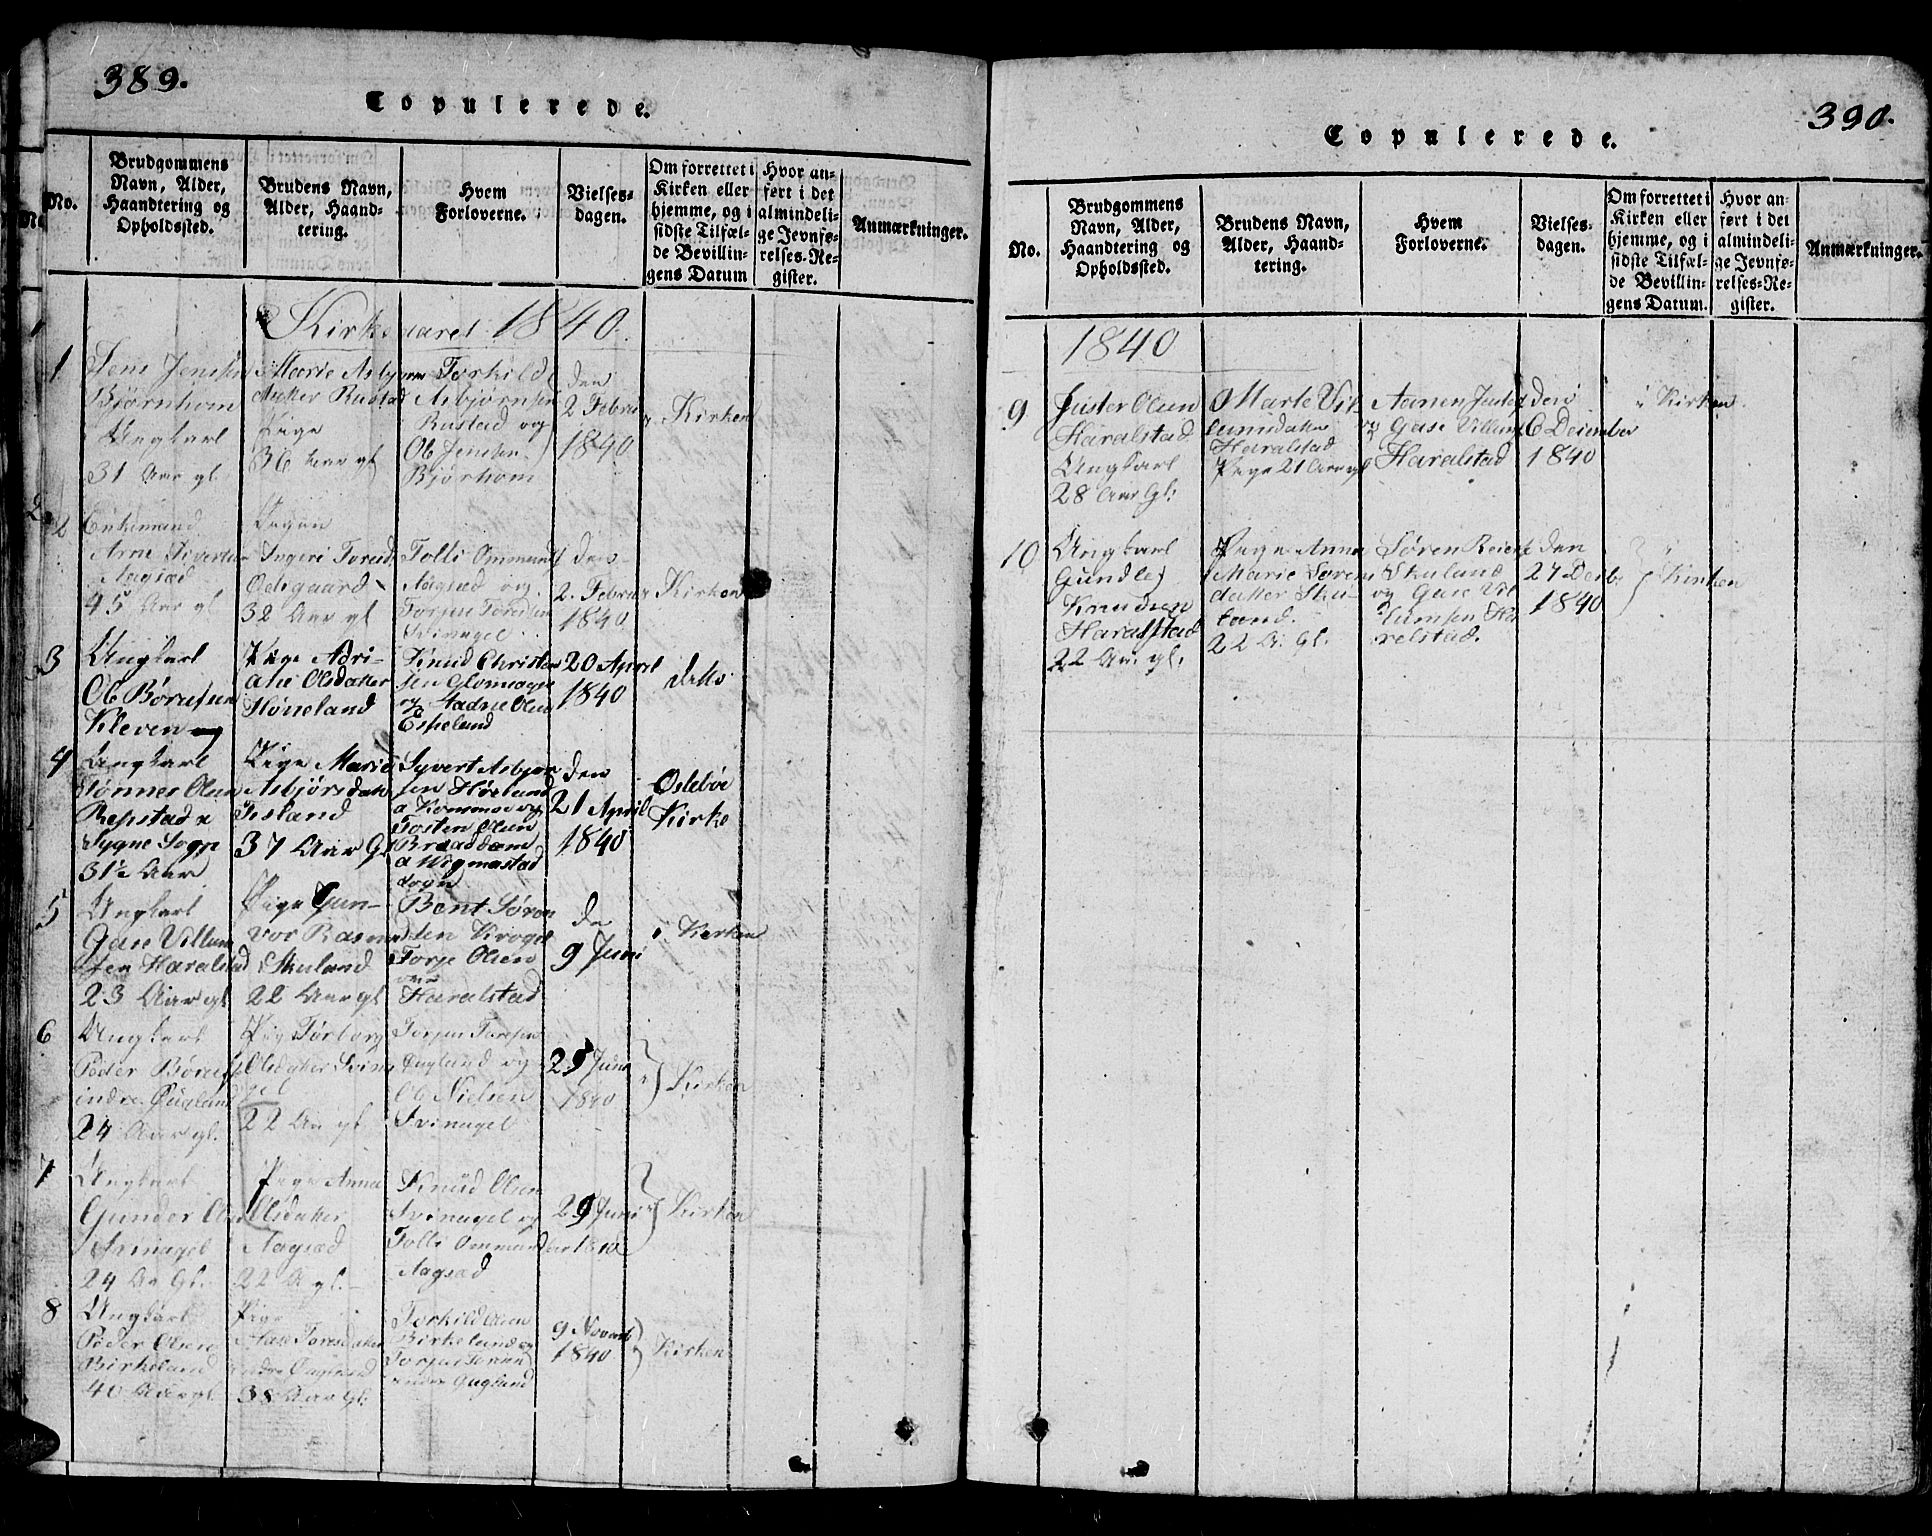 389.
Copulerede.
No.
Brudgommens
Navn, Alder,
Haandtering og
Opholdssted.
Brudens Navn,
Alder, Haand-
tering.
Hvem
Forloverne.
Vielses-
dagen.
Om forrettet i
Kirken eller
hjemme, og i
sidste Tilfæl-
de Bevillin-
gens Datum
Hvor an-
ført i det
almindeli-
ge Jevnfø-
relses-Re-
gister.
Anmærkninger.
Kirkeaaret 1840.
1
Jens Jensen
Bjørnhom
Ungkarl
31 Aar gl.
Marie Asbjørns
datter Rustad
Pige
36 Aar gl
Torkild
Asbjørnsen
Rustad og
Ob Jensen
Bjørhom
den
2 Februar
1840
i Kirken
2
Enkemand
Arne Sivertsen
Aagsæd
45 Aar gl
Pigen
Ingeri Toresd
Odsgaard
32 Aar gl
Tolli Ommunds
Aagsæd og
Torjus Toresen
Svinagel
den
2. Februar
1840
Kirken
3
Ungkarl
Ob Børufsen
Kleven
Pige Adri-
ane Olsdatter
Høneland
Knud Christen
sen Glomsager
og Aadne Olsen
Espeland
20 April
1840
detto
4
Ungkarl
Tønnes Olsen
Repstad a
Sygne Sogn
31½ Aar
Pige Marie
Asbjørsdatter
Iisland
37 Aar Gl
Syvert Asbjørn
sen Høeland
a Kommoe og
Tosten Olsen
Braaddom
a Wigmostad
sogn
den
21 April
1840
Oslebøe
Kirke
5
Ungkarl
Gase Villum
sen Haralstad
23 Aar gl
Pige Gun-
vor Rasmusd
Skuland
22 Aar gl
Bent Søren
sen Krogel
Torje Olsen
Haralstad
de
9 Juni
i Kirken
6
Ungkarl
Peder Børufs
indre Øugland
24 Aar gl.
Pig Torborg
Olsdatter Svina
gel
22 Aar gl
Torjus Toresen
Øugland og
Ob Nielsen
Svinagel
29 Juni
1840
i Kirken
7
Ungkarl
Gunder Olsen
Svinagel
24 Aar Gl.
Pige Anna
Olsdatter
Aagsæd
22 A gl.
Knud Olsen
Svinagel og
Tolli Ommund
Aagsæd
29 Juni
1840
i Kirken
8
Ungkarl
Peder Olsen
Birkeland
40 Aar gl.
Pige
Aase Toresdatter
indre Øugland
38 Aar Gl:
Torkild Olsen
Birkeland og
Torjus Toresen
indre Øugland
9 Novemb
1840
Kirken
390.
Copulerede.
No.
Brudgommens
Navn, Alder,
Haandtering og
Opholdssted.
Brudens Navn,
Alder, Haand-
tering.
Hvem
Forloverne.
Vielses-
dagen.
Om forrettet i
Kirken eller
hjemme, og i
sidste Tilfæl-
de Bevillin-
gens Datum.
Hvor an-
ført i det
almindeli-
ge Jevnfø-
relses-Re-
gister.
Anmærkninger.
1840
9
Juster Olsen
Haralstad
Ungkarl
28 Aar Gl:
Marte Vil
lumsdatter
Haralstad
Pige 21 Aar gl
Aanen
og Gase Villums
Haralstad
den
6 December
1840
i Kirken.
10
Ungkarl
Gundlej
Knudsen
Haralstad
22 Aar. gl.
Pige Anna
Marie Sørens
datter Sku-
land.
22 A. Gl.
Søren Reiers
Skuland
og Gase Vil
lumsen Ha
relstad.
den
27 Decbr
1840
i
Kirken